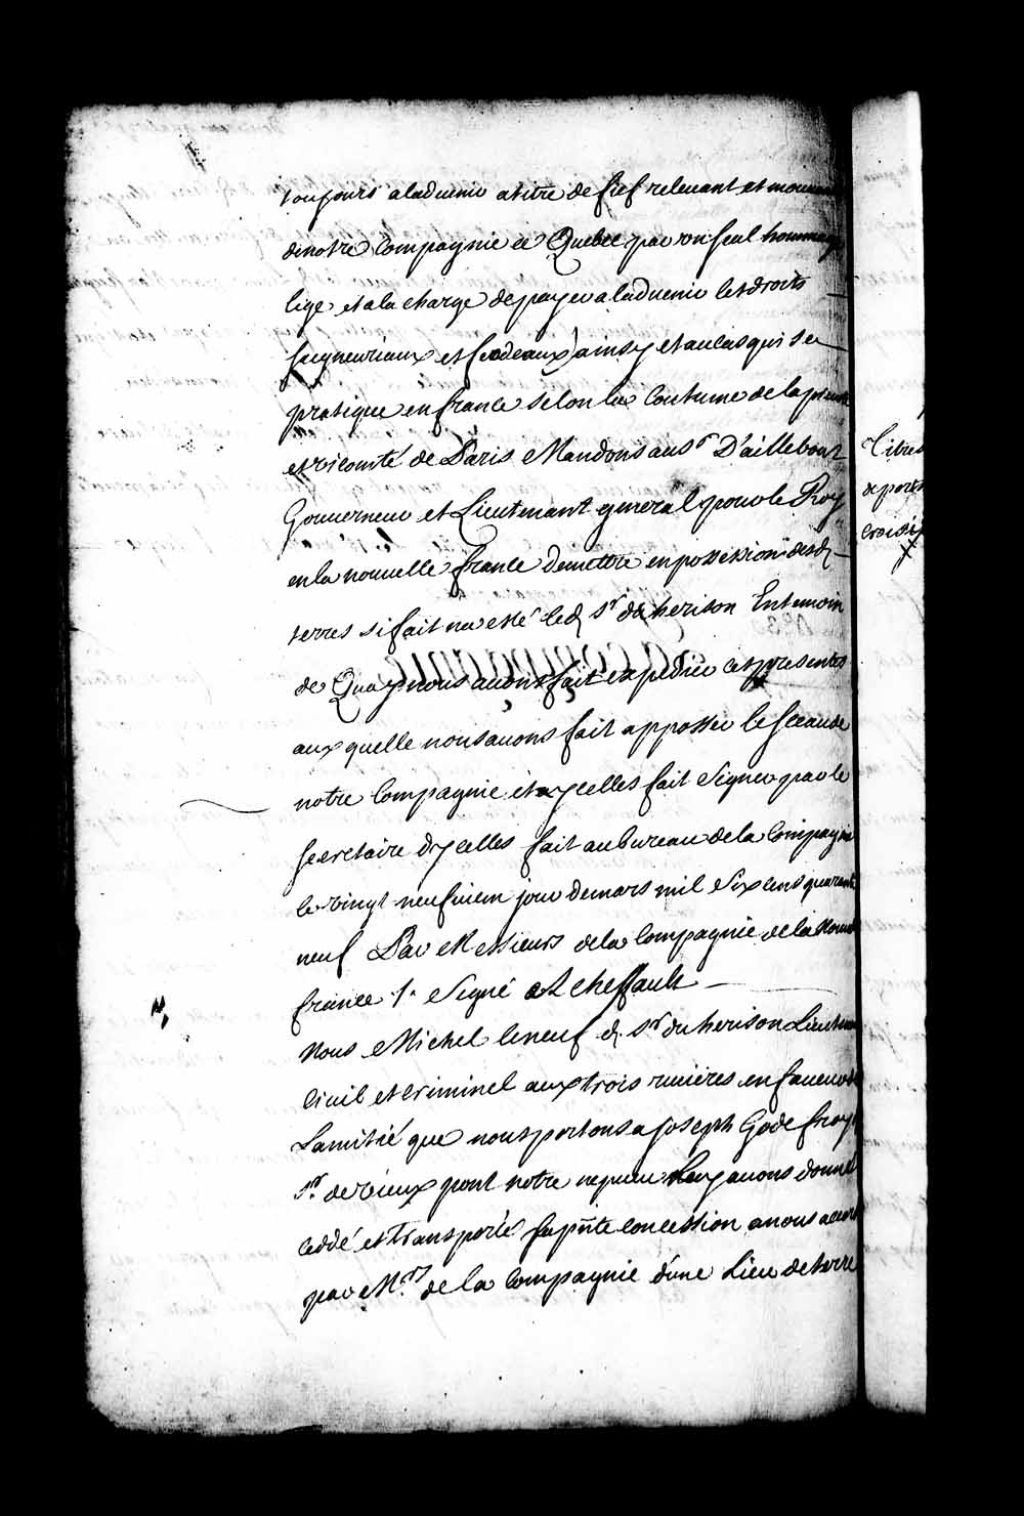 toujours aladuenir atitre de fief releuant et mouuan
denotre Compagnie a Quebec par un seul hommag
lige et ala charge depayer aladuenir les droits
seigneuriaux et feodeaux ainsy et au cas qui se
pratique en france selon la Coutume de la preuosté
et vicomté de Paris Mandons au sr D'aillebout
Gouuerneur et Lieutenant general pour le Roy
en la nouuelle france demettre en possession desd
terres si fait na esté led sr du herison En temoin
de Quoy nous auons fait expedier ces presentes
aux quelle nous auons fait apposser le sceau de
notre Compagnie et ycelles fait Signer par le
secretaire dycelles fait au bureau de la Compagnie
le vingt neufuiem jour de mars mil Six cens quarante
neuf Par Messieurs de la Compagnie de la Nouu
france /. Signé A Cheffault
Nous Michel leneuf d. sr du herison Lieuten
Ciuil et Criminel aux trois riuieres en faueur de
Lamitié que nous portons a Joseph Godefroy
sr. de vieux pont notre nepueu luy auons donné
Ceddé et transporté la pñte concession a nous accor
par Mrs de la Compagnie d'une Lieu de terre
Titres
de port
croisi